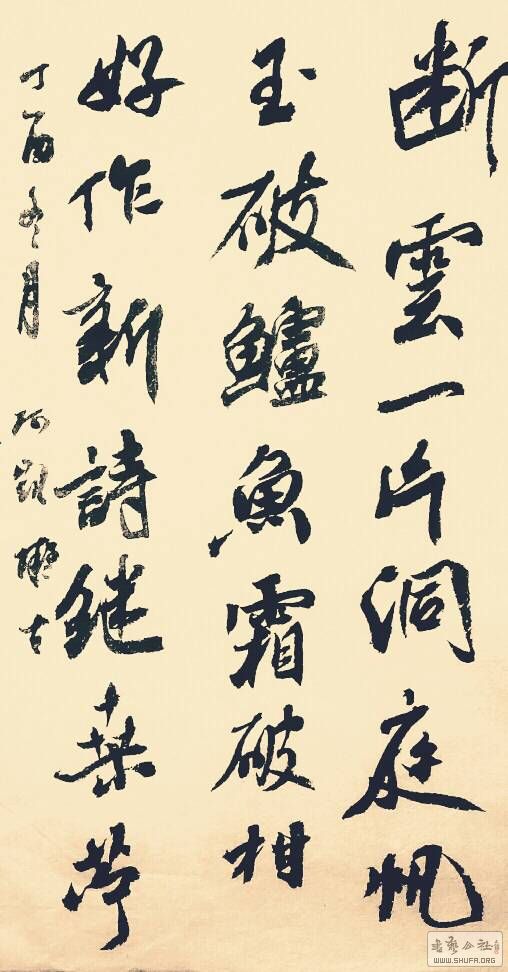 断雲一片洞庭帆
玉破鱸魚霜破柑
好作新詩継桑苧
丁酉冬月
書藝公社
WWW.SHUFA.ORG